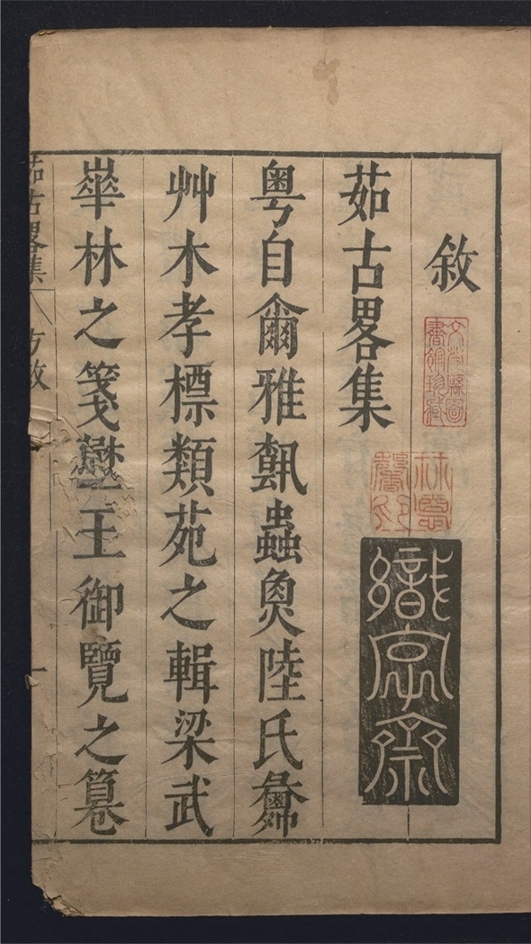 敘
茹古畧集
粤自爾雅甄蟲魚陸氏
艸木孝標類苑之輯梁武
崋林之箋王御覽之纂
茹古畧集 方敘 一